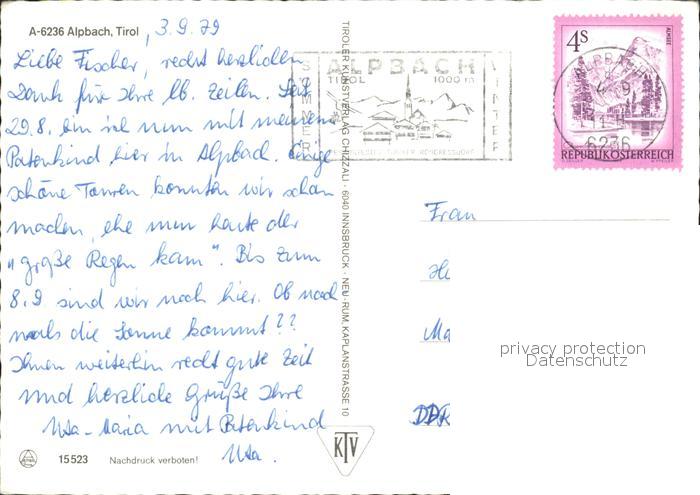 A-6236 Alpbach, Tirol, 3.9.79
Liebe Fischer, recht herzlichen
Dank für Ihre lb. Zeilen. Seit
29.8. bin ich nun mit meinem
Patenkind hier in Alpbach. Einige
schöne Touren konnten wir schon
machen, ehe nun heute der
"große Regen kam". Bis zum
8.9 sind wir noch hier. Ob noch
mals die Sonne kommt??
Ihnen weiterhin recht gute Zeit
und herzliche Grüße Ihre
Uta-Maria mit Patenkind
Uta.
15523 Nachdruck verboten!
TIROLER KUNSTVERLAG CHIZZALI · 6040 INNSBRUCK · NEU-RUM, KAPLANSTRASSE 10
KTV
SOMMER
ALPBACH
TIROL 1000 m
WINTER
KONGRESSORT
4S
ALMSEE
ALPBACH
4. 9
6236
REPUBLIK ÖSTERREICH
Frau
Ma
DDR
privacy protection
Datenschutz